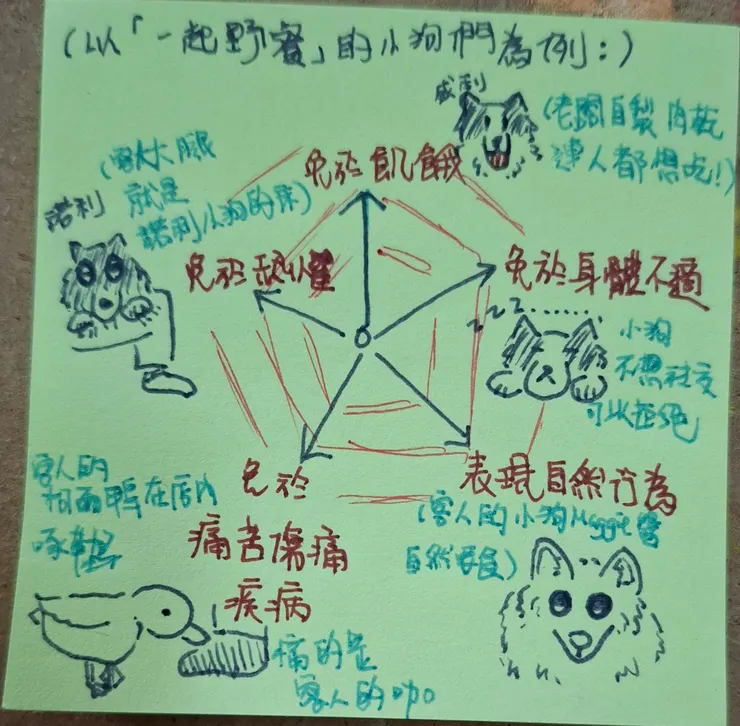 (以「一起野餐」的小狗們為例:)
威利
(老闆自製肉乾
連人都想吃!)
免於飢餓
(客人大腿
就是
諾利小狗的床)
諾利
免於恐懼
免於身體不適
zzz
小狗
不想社交
可以拒絕
免於
痛苦傷痛
疾病
表現自然行為
(客人的小狗Maggie會
自然要食)
客人的
柯爾鴨在店內
啄鞋
痛的是
客人的